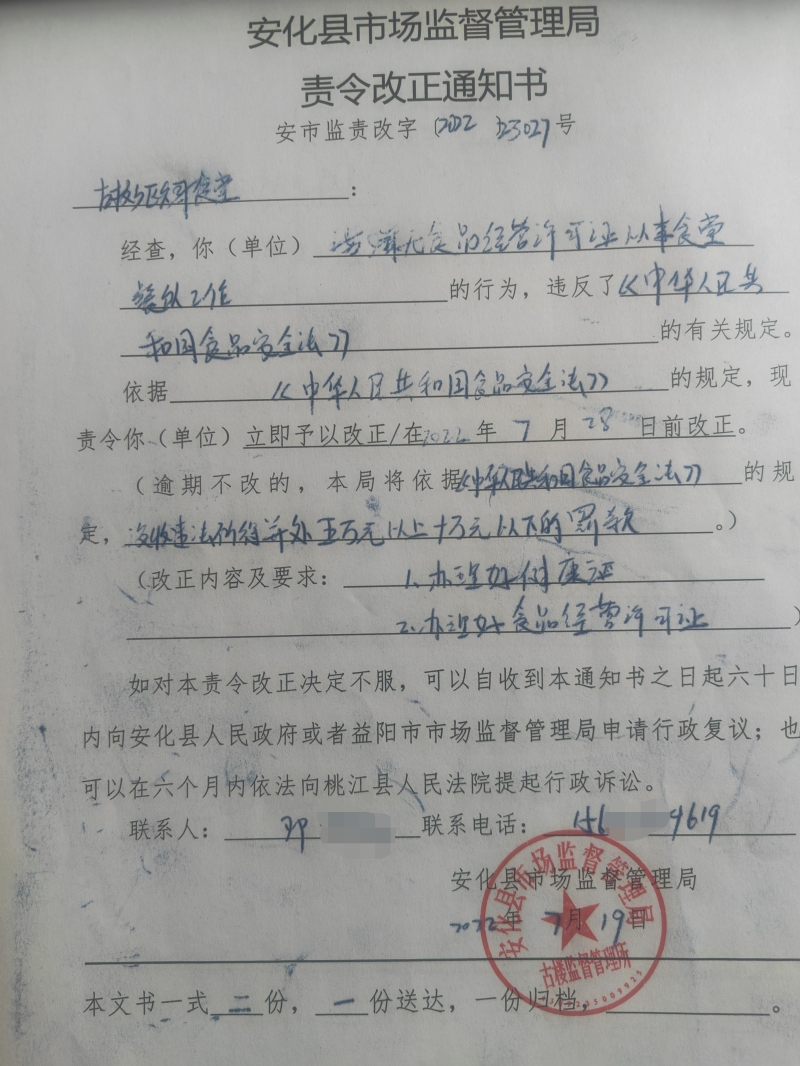 安化县市场监督管理局
责令改正通知书
安市监责改字〔2022〕23027号
食堂：
经查，你（单位）涉嫌无食品经营许可证从事食堂
餐饮工作的行为，违反了《中华人民共
和国食品安全法》的有关规定。
依据《中华人民共和国食品安全法》的规定，现
责令你（单位）立即予以改正/在2022年7月28日前改正。
（逾期不改的，本局将依据《中华人民共和国食品安全法》的规
定，没收违法所得并处五万元以上十万元以下的罚款。）
（改正内容及要求：1、办理好健康证
2、办理好食品经营许可证）
如对本责令改正决定不服，可以自收到本通知书之日起六十日
内向安化县人民政府或者益阳市市场监督管理局申请行政复议；也
可以在六个月内依法向桃江县人民法院提起行政诉讼。
联系人： 联系电话：156 4619
安化县市场监督管理局
2022年7月19日
安化县市场监督管理局
古楼监督管理所
本文书一式二份，一份送达，一份归档，。